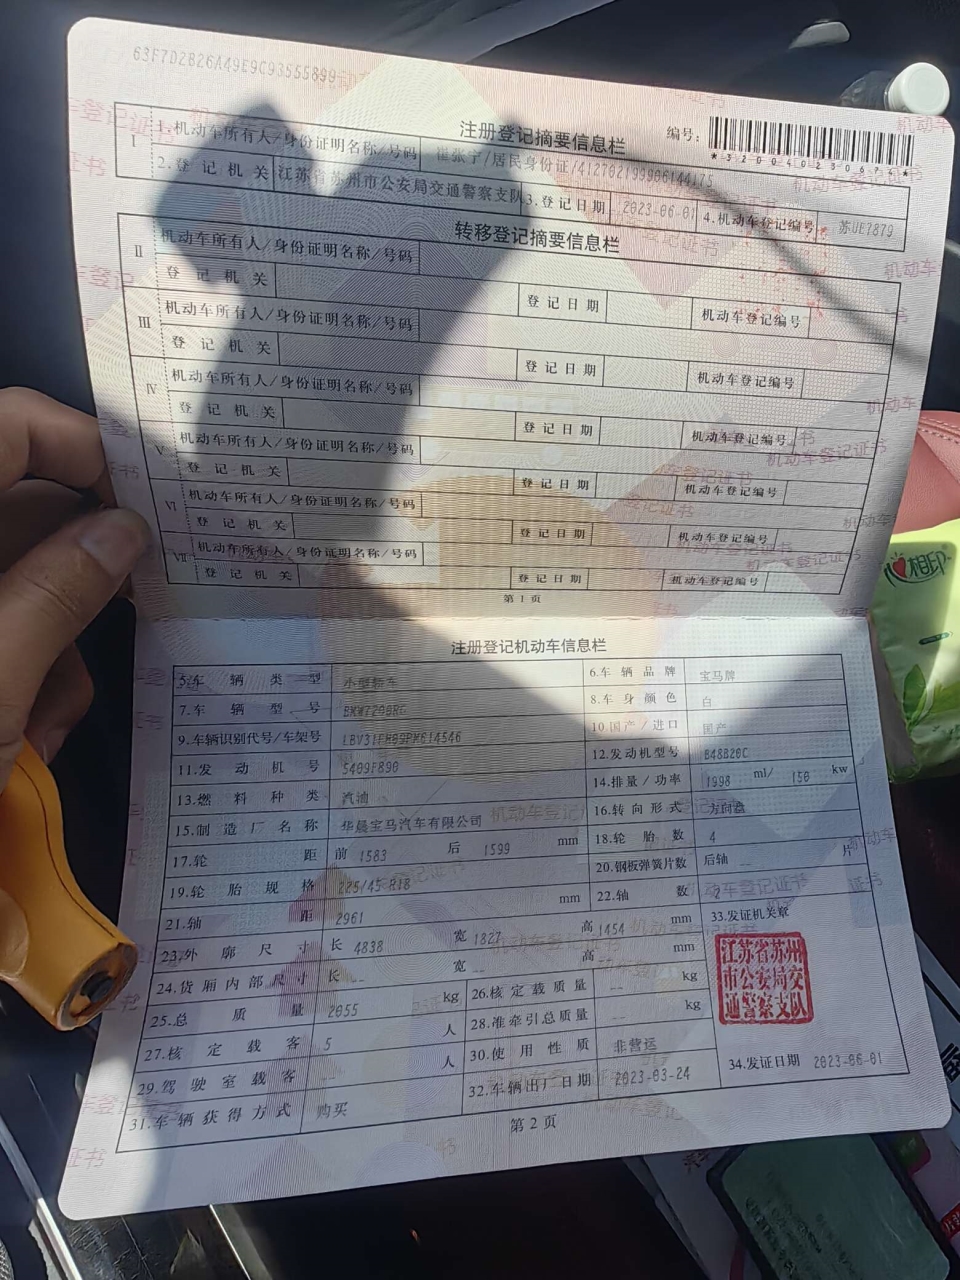 63F7D2B26A49E9C93555899
注册登记摘要信息栏
编号:
I
1.机动车所有人/身份证明名称/号码 崔张宁/居民身份证/412702199906144175
2.登记机关 江苏省苏州市公安局交通警察支队 3.登记日期 2023-06-01 4.机动车登记编号 苏UE7879
转移登记摘要信息栏
II 机动车所有人/身份证明名称/号码
登记机关 登记日期 机动车登记编号
III 机动车所有人/身份证明名称/号码
登记机关 登记日期 机动车登记编号
IV 机动车所有人/身份证明名称/号码
登记机关 登记日期 机动车登记编号
V 机动车所有人/身份证明名称/号码
登记机关 登记日期 机动车登记编号
VI 机动车所有人/身份证明名称/号码
登记机关 登记日期 机动车登记编号
VII 机动车所有人/身份证明名称/号码
登记机关 登记日期 机动车登记编号
第1页
注册登记机动车信息栏
5.车辆类型 小型轿车 6.车辆品牌 宝马牌
7.车辆型号 8.车身颜色 白
9.车辆识别代号/车架号 10.国产/进口 国产
11.发动机号 5409F890 12.发动机型号 B48B20C
13.燃料种类 汽油 14.排量/功率 1998 ml/ kw
15.制造厂名称 华晨宝马汽车有限公司 16.转向形式 方向盘
17.轮距 前 1583 后 1599 mm 18.轮胎数 4
19.轮胎规格 225/45 R18 20.钢板弹簧片数 后轴 -- 片
21.轴距 2961 mm 22.轴数 2
23.外廓尺寸 长 4838 宽 1827 高 1454 mm 33.发证机关章
24.货厢内部尺寸 长 -- 宽 -- 高 -- mm
25.总质量 2055 kg 26.核定载质量 -- kg
27.核定载客 5 人 28.准牵引总质量 -- kg
29.驾驶室载客 -- 人 30.使用性质 非营运
31.车辆获得方式 购买 32.车辆出厂日期 2023-03-24 34.发证日期 2023-06-01
江苏省苏州
市公安局交
通警察支队
第2页
心相印